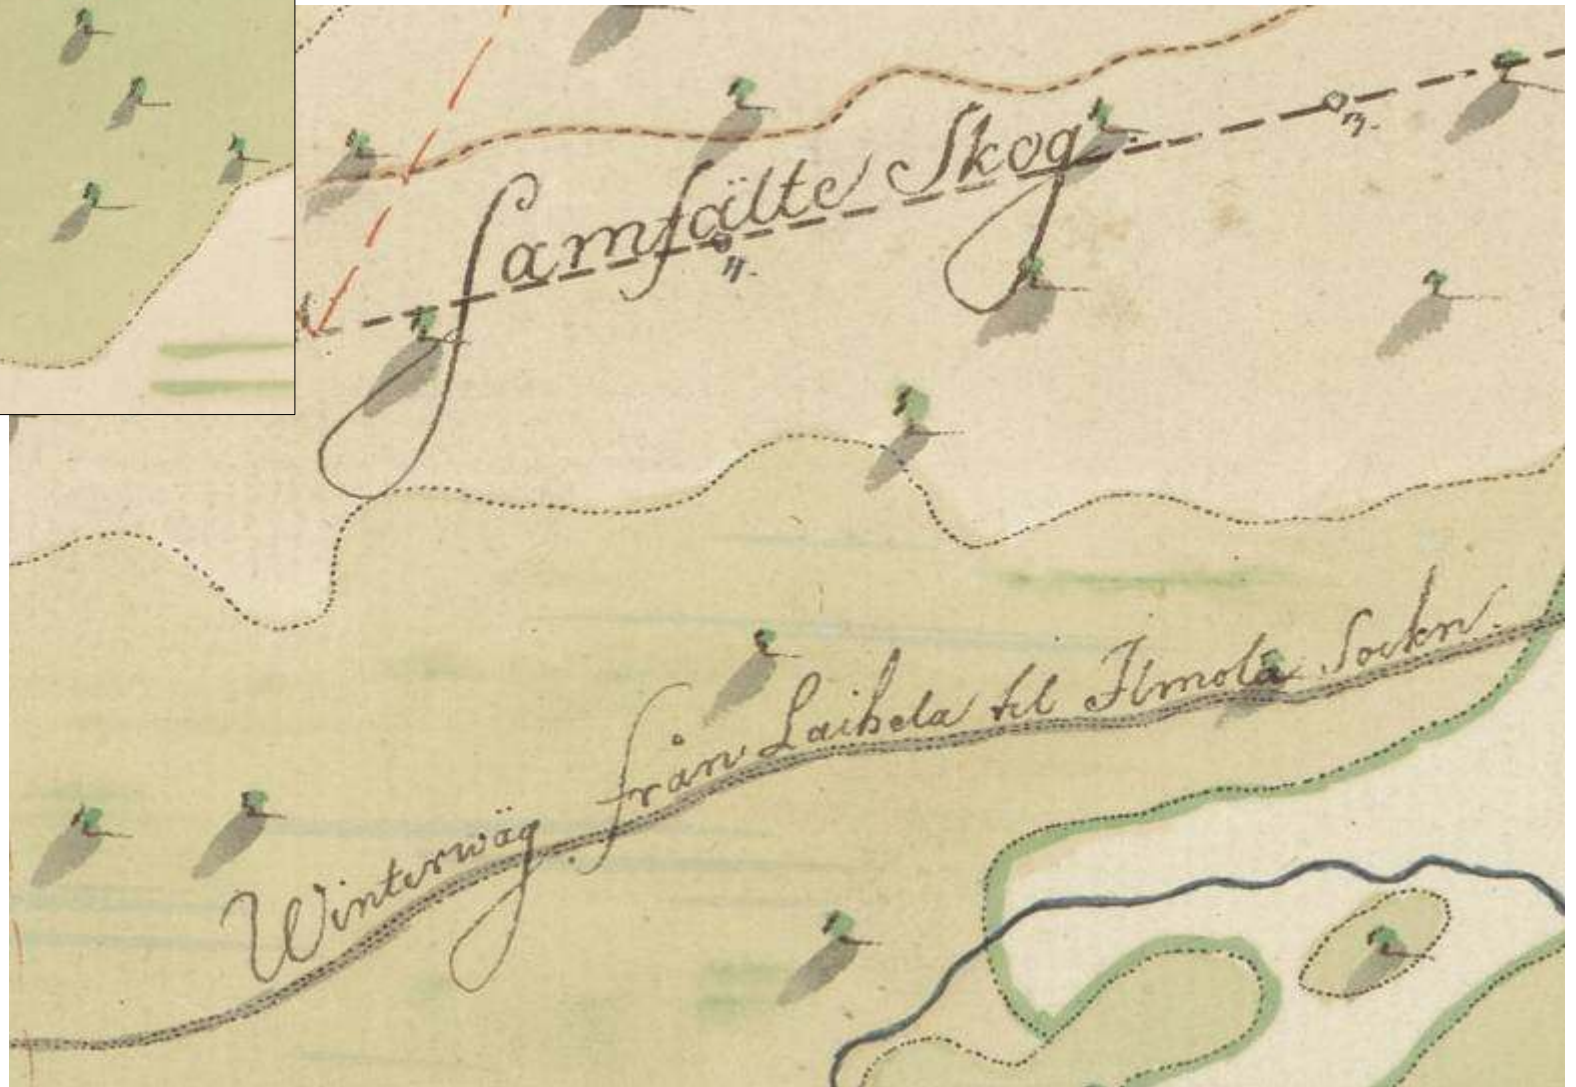 Samfälte Skog
Winterwäg från Laihela til Ilmola Sockn.